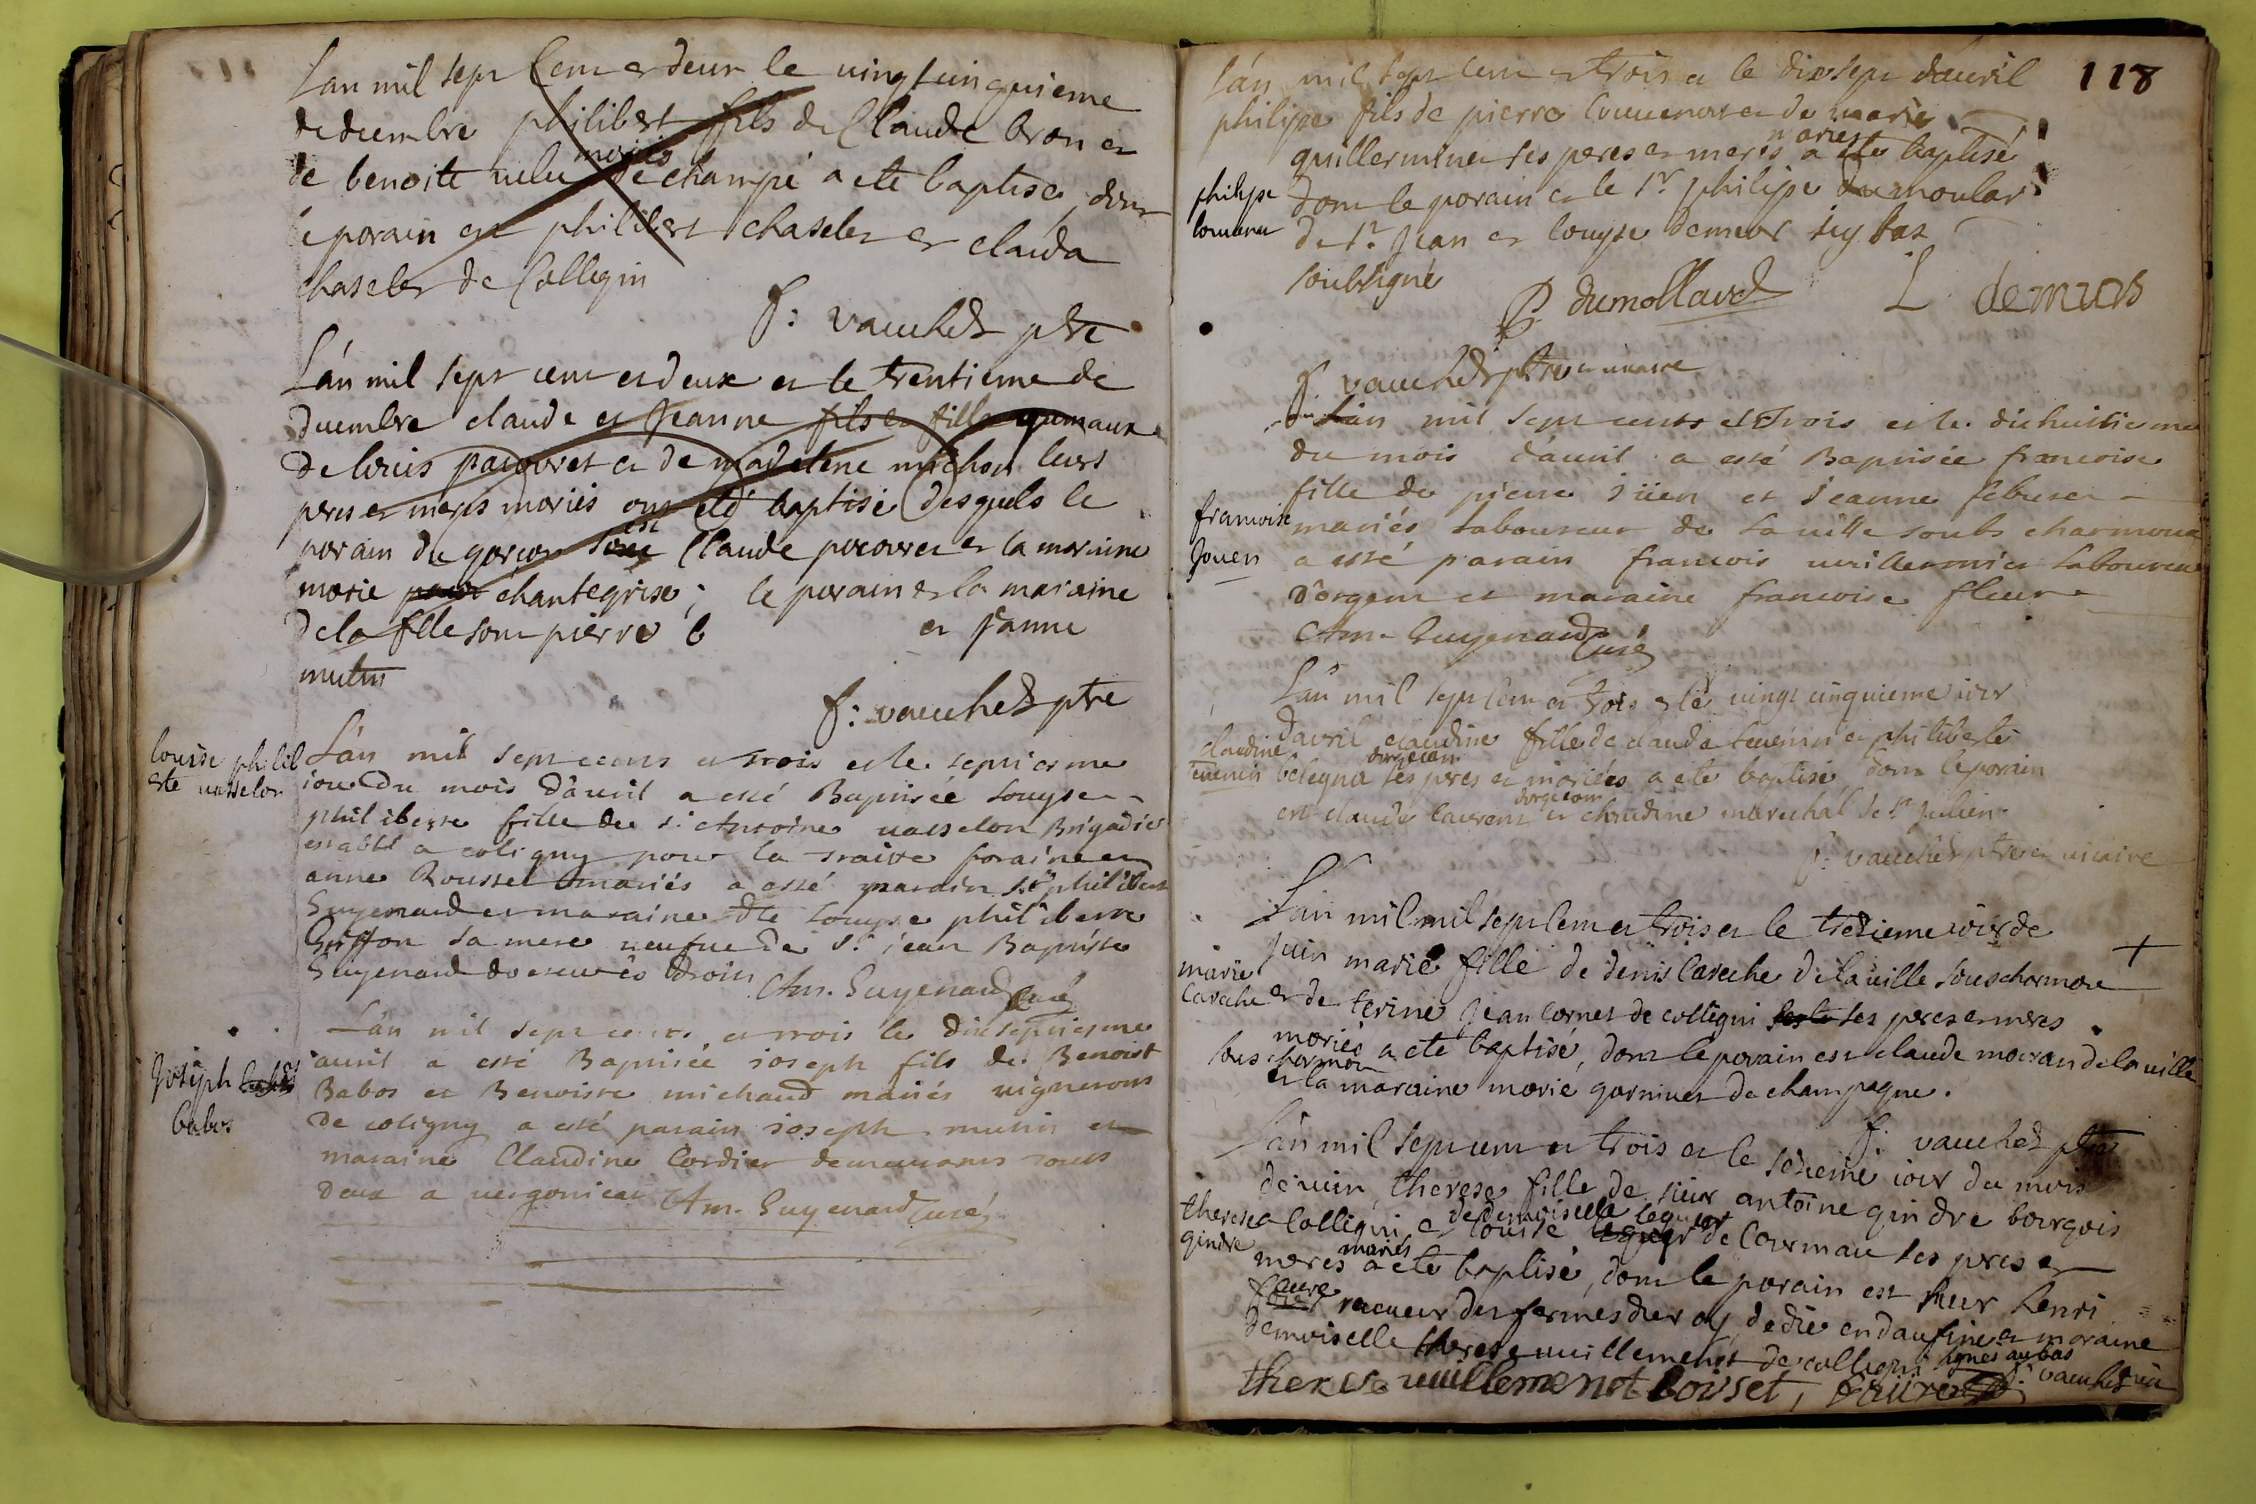 L'an mil sept Cent et deux le uingt cinquieme
de decembre philibert fils de Claude bron et
de benoite mariés de champé a ete baptisé, dont
le parain est philibert chaselet et clauda
chaselet de Collegin
f: vauchez ptre
L'an mil sept cent et deux et le trentieme de
decembre claude et Jeanne fils et fille gumaux
de louis pacouret et de madelene michon leurs
peres et meres mariés ont eté baptisé desquels le
parain du garcon est Claude pacouret et la maraine
marie chantegrise; le parain et la maraine
de la fille sont pierre b et Janne
mutin
f: vauchez ptre
louise philib
erte vasselon
L'an mil sept cents et trois et le septiesme
iour du mois d'auril a esté Baptisée Louyse
philiberte fille du sr Antoine vasselon Brigadier
establi a coligny pour la traite foraine et
anne Rousset mariés a esté parain Sr philibert
Guyenard et maraine dlle Louyse philiberte
Griffon sa mere veufue de Sr jean Baptiste
Guyenard docteur és droits
Am. Guyenard Curé
Joseph
babos
L'an mil sept cents et trois le dixseptiesme
auril a esté Baptisée joseph fils de Benoist
Babos et Benoiste michaud mariés vignerons
de coligny a esté parain joseph mutin et
maraine Claudine Cordier demeurants tous
deux a vergonjeat Am. Guyenard Curé
118
L'an mil sept cent et trois et le dixsept d'auril
philipe fils de pierre et de marie
guillerminet ses peres et meres mariés a este baptisé
philipe
dont le parain est le Sr philipe dumoular
de St Jean et louyse demeur icy bas
soubsigné
P dumollard L demurs
f. vauchez ptre et vicaire
L'an mil sept cents et trois et le dixhuitieme
du mois d'auril a esté Baptisée francoise
fille de pierre et jeanne
francoise
Jouen
mariés laboureur de la ville soubs charmoux
a esté parain francois vuillermier laboureur
d'orgent et maraine francoise fleur
Am. Guyenard Curé
L'an mil sept cent et trois et le vingt cinquieme iour
d'auril claudine fille de claude teuenin et philiberte
claudine
teuenin
ses peres et mariées a ete baptisé, dont le parain
est claude laurent et claudine marechal de St Julien
f: vauchez ptre et vicaire
L'an mil mil sept cent et trois et le trezieme iour de
juin marie fille de denis Careche de la ville sous charmoux
marie
Careche
et de terine Jean Cornet de colligni ses peres et meres
mariés a eté baptisé, dont le parain est claude morand de la ville
sous charmou
et la maraine marie garnivet de champagne.
f. vauchez ptre
L'an mil sept cent et trois et le sezieme iour du mois
de iuin, therese fille de sieur antoine gindre bourgois
therese
gindre
a Colligni et de demoiselle louise seguet de Cormau ses peres et
meres mariés a eté baptisé, dont le parain est sieur henri
faure receueur des fermes du roy de die en daufine et maraine
demoiselle therese vuillemenot de colligni signés au bas
f: vauchez
therese vuillemenot boisset, faure